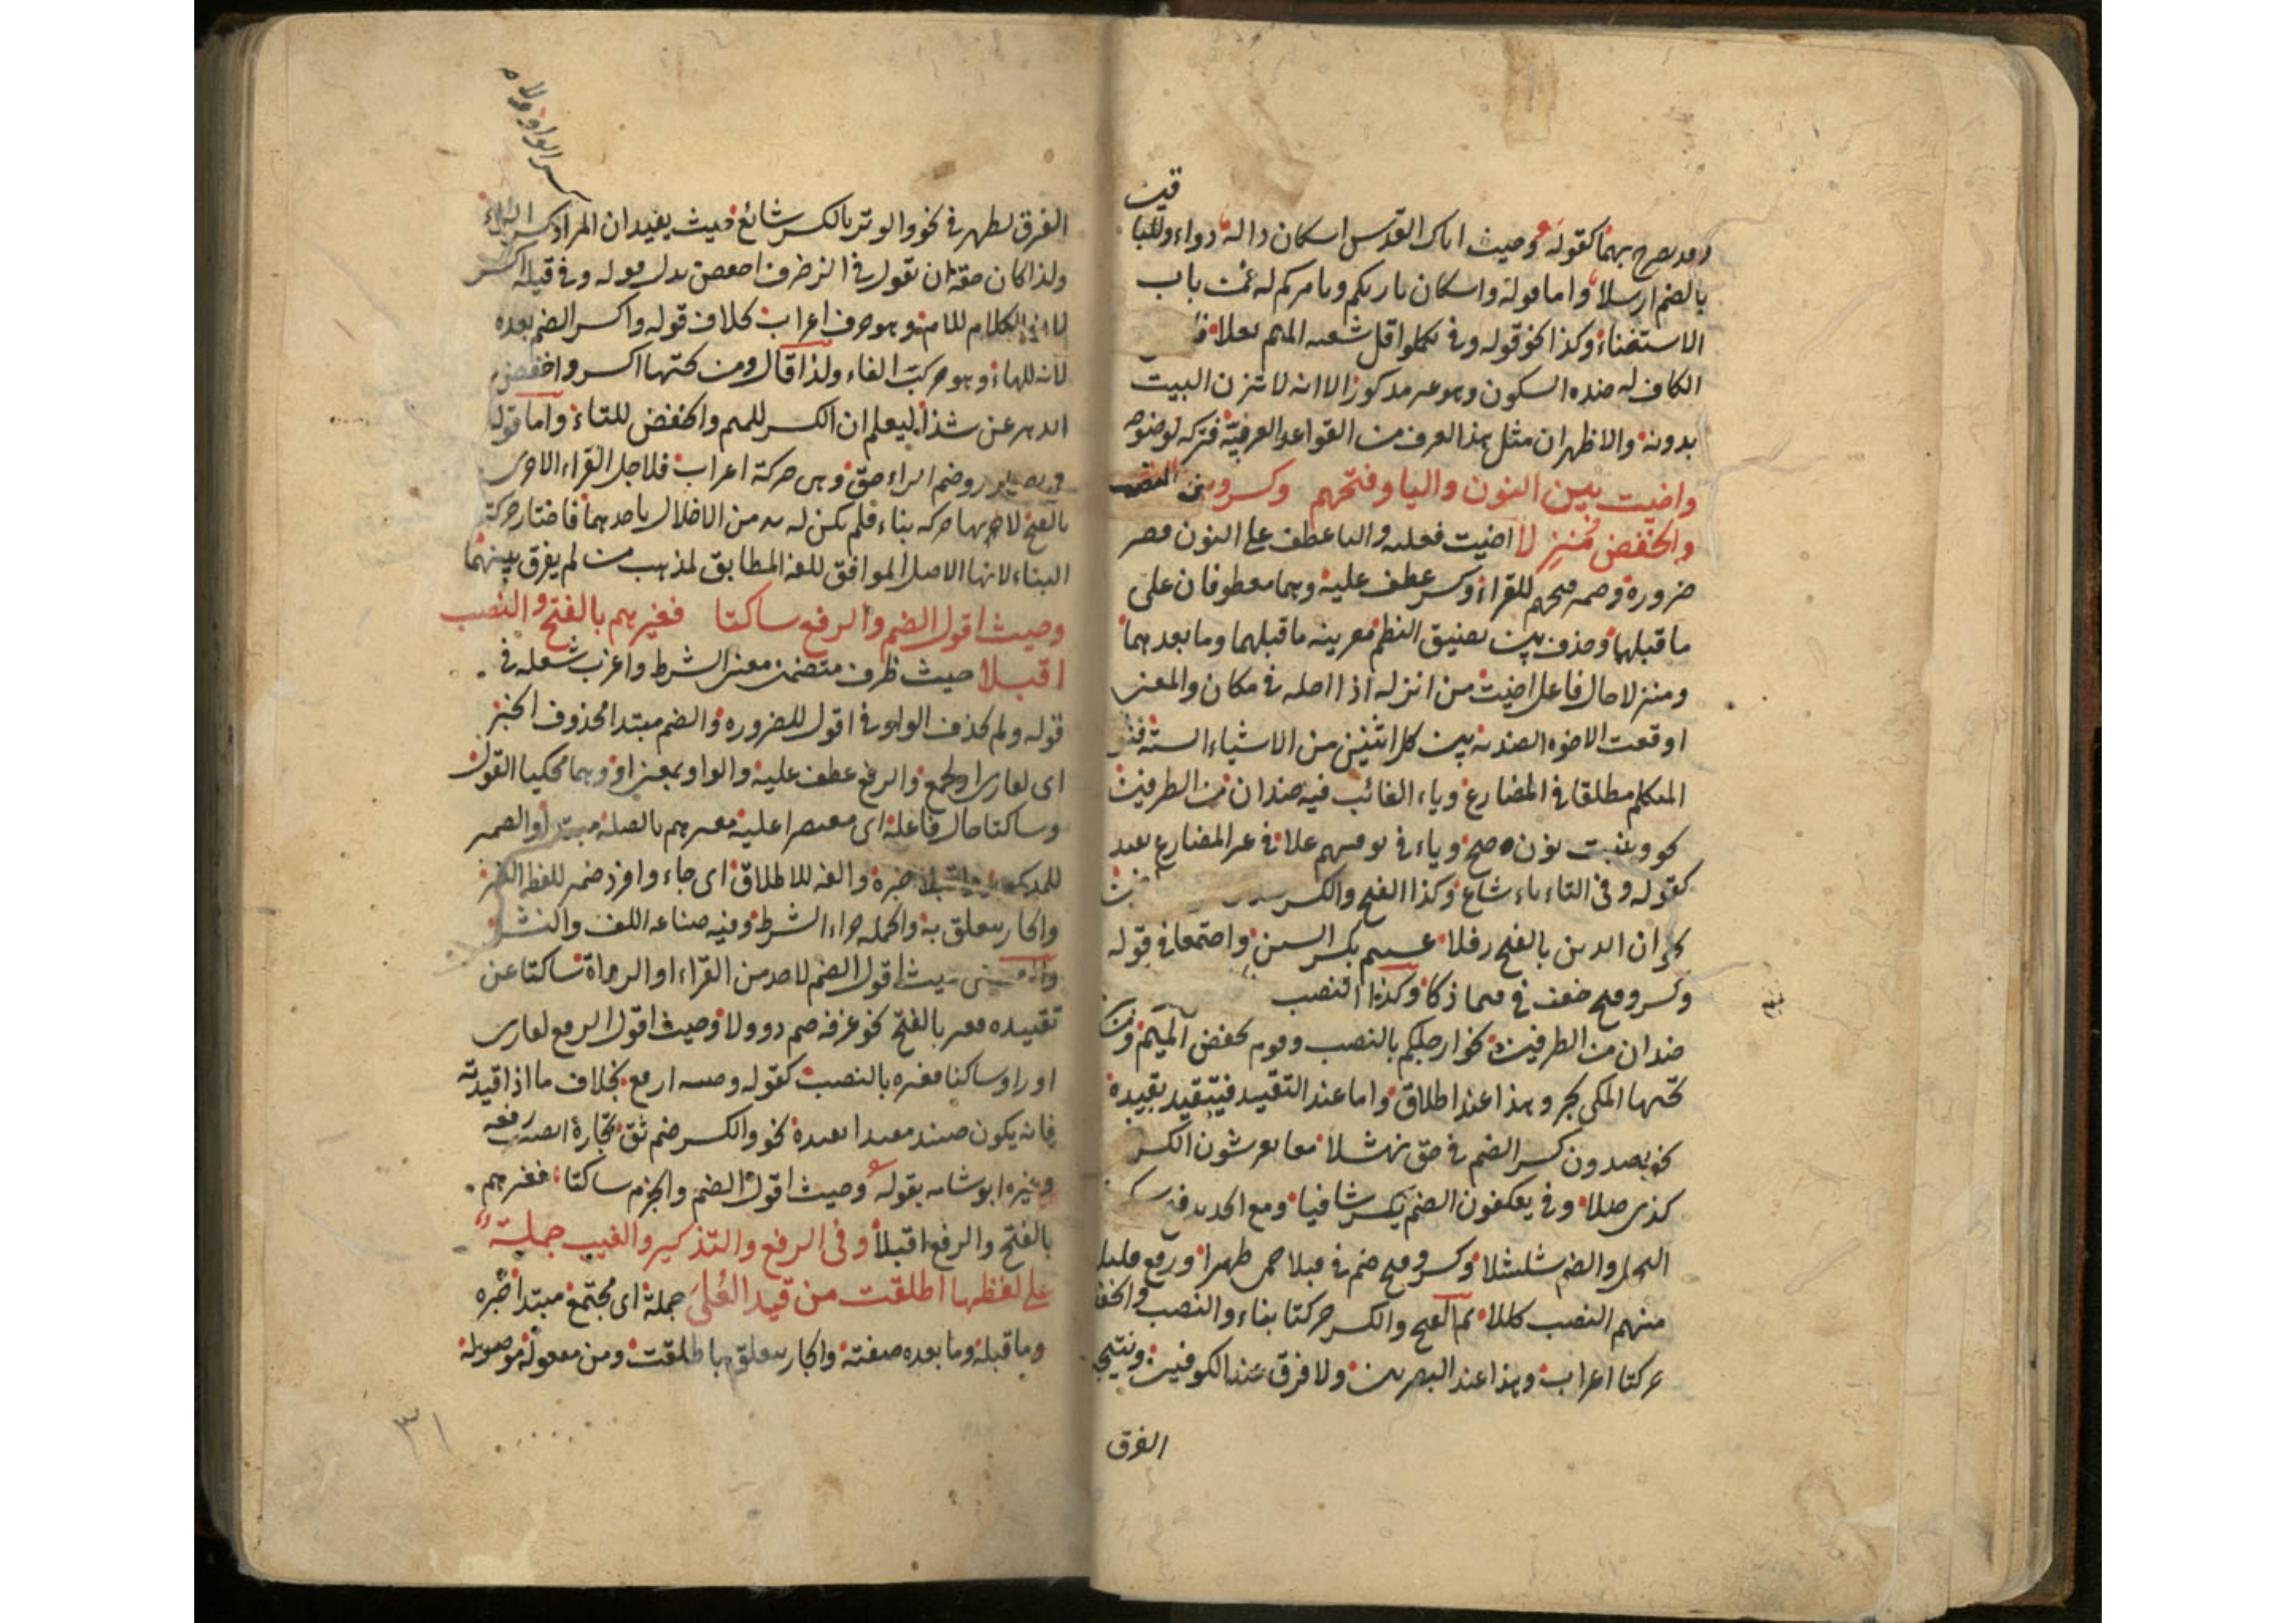 قين
وقد صرح بهما كقوله وحيث اتاك القدس اسكان داله دواء وللبا
بالضم ارسلا واما قوله واسكان بارئكم ويامركم له فمن باب
الاستغناء وكذا نحو قوله وفي تكملوا قل شعبة الميم ثقلا
الكاف له ضده السكون وهو غير مذكور الا انه لا تتزن البيت
بدونه والاظهر ان مثل هذا العرف من القواعد العرفية فتركه لوضوحه
واخيت بين النون واليا وفتحهم وكسر وبين النصب
والخفض منزلا اخيت فعلية واليا عطف على النون قصر
ضرورة وضمير فتحهم للقراء وكسر عطف عليه وهما معطوفان على
ما قبلهما وحذف بين لضيق النظم بقرينة ما قبلهما وما بعدهما
ومنزلا حال فاعل اخيت من انزله اذا احله في مكان والمعنى
اوقعت الاخوة الضدية بين كل اثنين من الاشياء الستة فنون
المتكلم مطلقا في المضارع وياء الغائب فيه ضدان من الطرفين
نحو ونثبت نون صح وياء في نوفيهم علا في غير المضارع يعيد
كقوله وفي التاء ياء شاع وكذا الفتح والكسر
نحو ان الدين بالفتح رفلا عسيتم بكسر السين واجتمعا في قوله
وكسر وفتح ضعف في ميما ذكا وكذا النصب
ضدان من الطرفين نحو ارجلكم بالنصب وقوم بخفض الميم ومن
تحتها المكي يجر وهذا عند اطلاق واما عند التقييد فيتقيد بقيده
نحو يصدون كسر الضم في حق نهشلا معا يعرشون الكسر
كذي صلا وفي يعكفون الضم يكسر شافيا ومع الحديد
البخل والضم شلشلا وكسر وفتح ضم في قبلا حمى ظهيرا ورفع قليل
منهم النصب كللا ثم الفتح والكسر حركتا بناء والنصب والخفض
حركتا اعراب وهذا عند البصريين ولا فرق عند الكوفيين ونتيجة
الفرق
الفرق تظهر في نحو والوتر بالكسر شائع حيث يفيد ان المراد كسر
ولذا كان حقه ان يقول في الزخرف اخفض بدل قوله وفي قيله اكسر
لانه في الكلام للام وهو حرف اعراب بخلاف قوله واكسر الضم بعده
لانه للهاء وهو حركت الفاء ولذا قال ومن تحتها اكسر واخفض
الدهر عن شذا ليعلم ان الكسر للميم والخفض للتاء واما قوله
وضم الراء حق وهي حركة اعراب فلاجل القراء الاخرى
بالفتح لانها حركة بناء فلم يكن له بد من الاخلال باحدهما فاختار حركة
البناء لانها الاصل الموافق للغة المطابق لمذهب من لم يفرق بينهما
وحيث اقول الضم والرفع ساكتا فغيرهم بالفتح والنصب
اقبلا حيث ظرف متضمن معنى الشرط واعرب شعلة في
قوله ولم تحذف الواو في اقول للضرورة والضم مبتدا محذوف الخبز
اي لقارئ او لجمع والرفع عطف عليه والواو بمعنى او وهما محكيا القول
وساكتا حال فاعله اي مقتصرا عليه فغيرهم بالصلة مبتدا والضمير
للمذكور واقبلا خبره والفه للاطلاق اي جاء وافرد ضمير للفظ الغير
والجار يتعلق به والجملة جزاء الشرط وفيه صناعة اللف والنشر
والمعنى حيث اقول الضم لاحد من القراء او الرواة ساكتا عن
تقييده فغيره بالفتح نحو غرفة ضم ذو ولا وحيث اقول الرفع لقارئ
او راو ساكتا فغيره بالنصب كقوله وصية ارفع بخلاف ما اذا قيدته
فانه يكون ضده مقيدا بقيده نحو والكسر ضم ثق تجارة انصب رفعه
وغيره ابو شامه بقوله وحيث اقول الضم والجزم ساكتا فغيرهم
بالفتح والرفع اقبلا وفي الرفع والتذكير والغيب جملة
على لفظها اطلقت من قيد العلى جملة اي مجتمع مبتدا خبره
وما قبله وما بعده صفته والجار يتعلق باطلقت ومن مفعوله موصولة
٣١